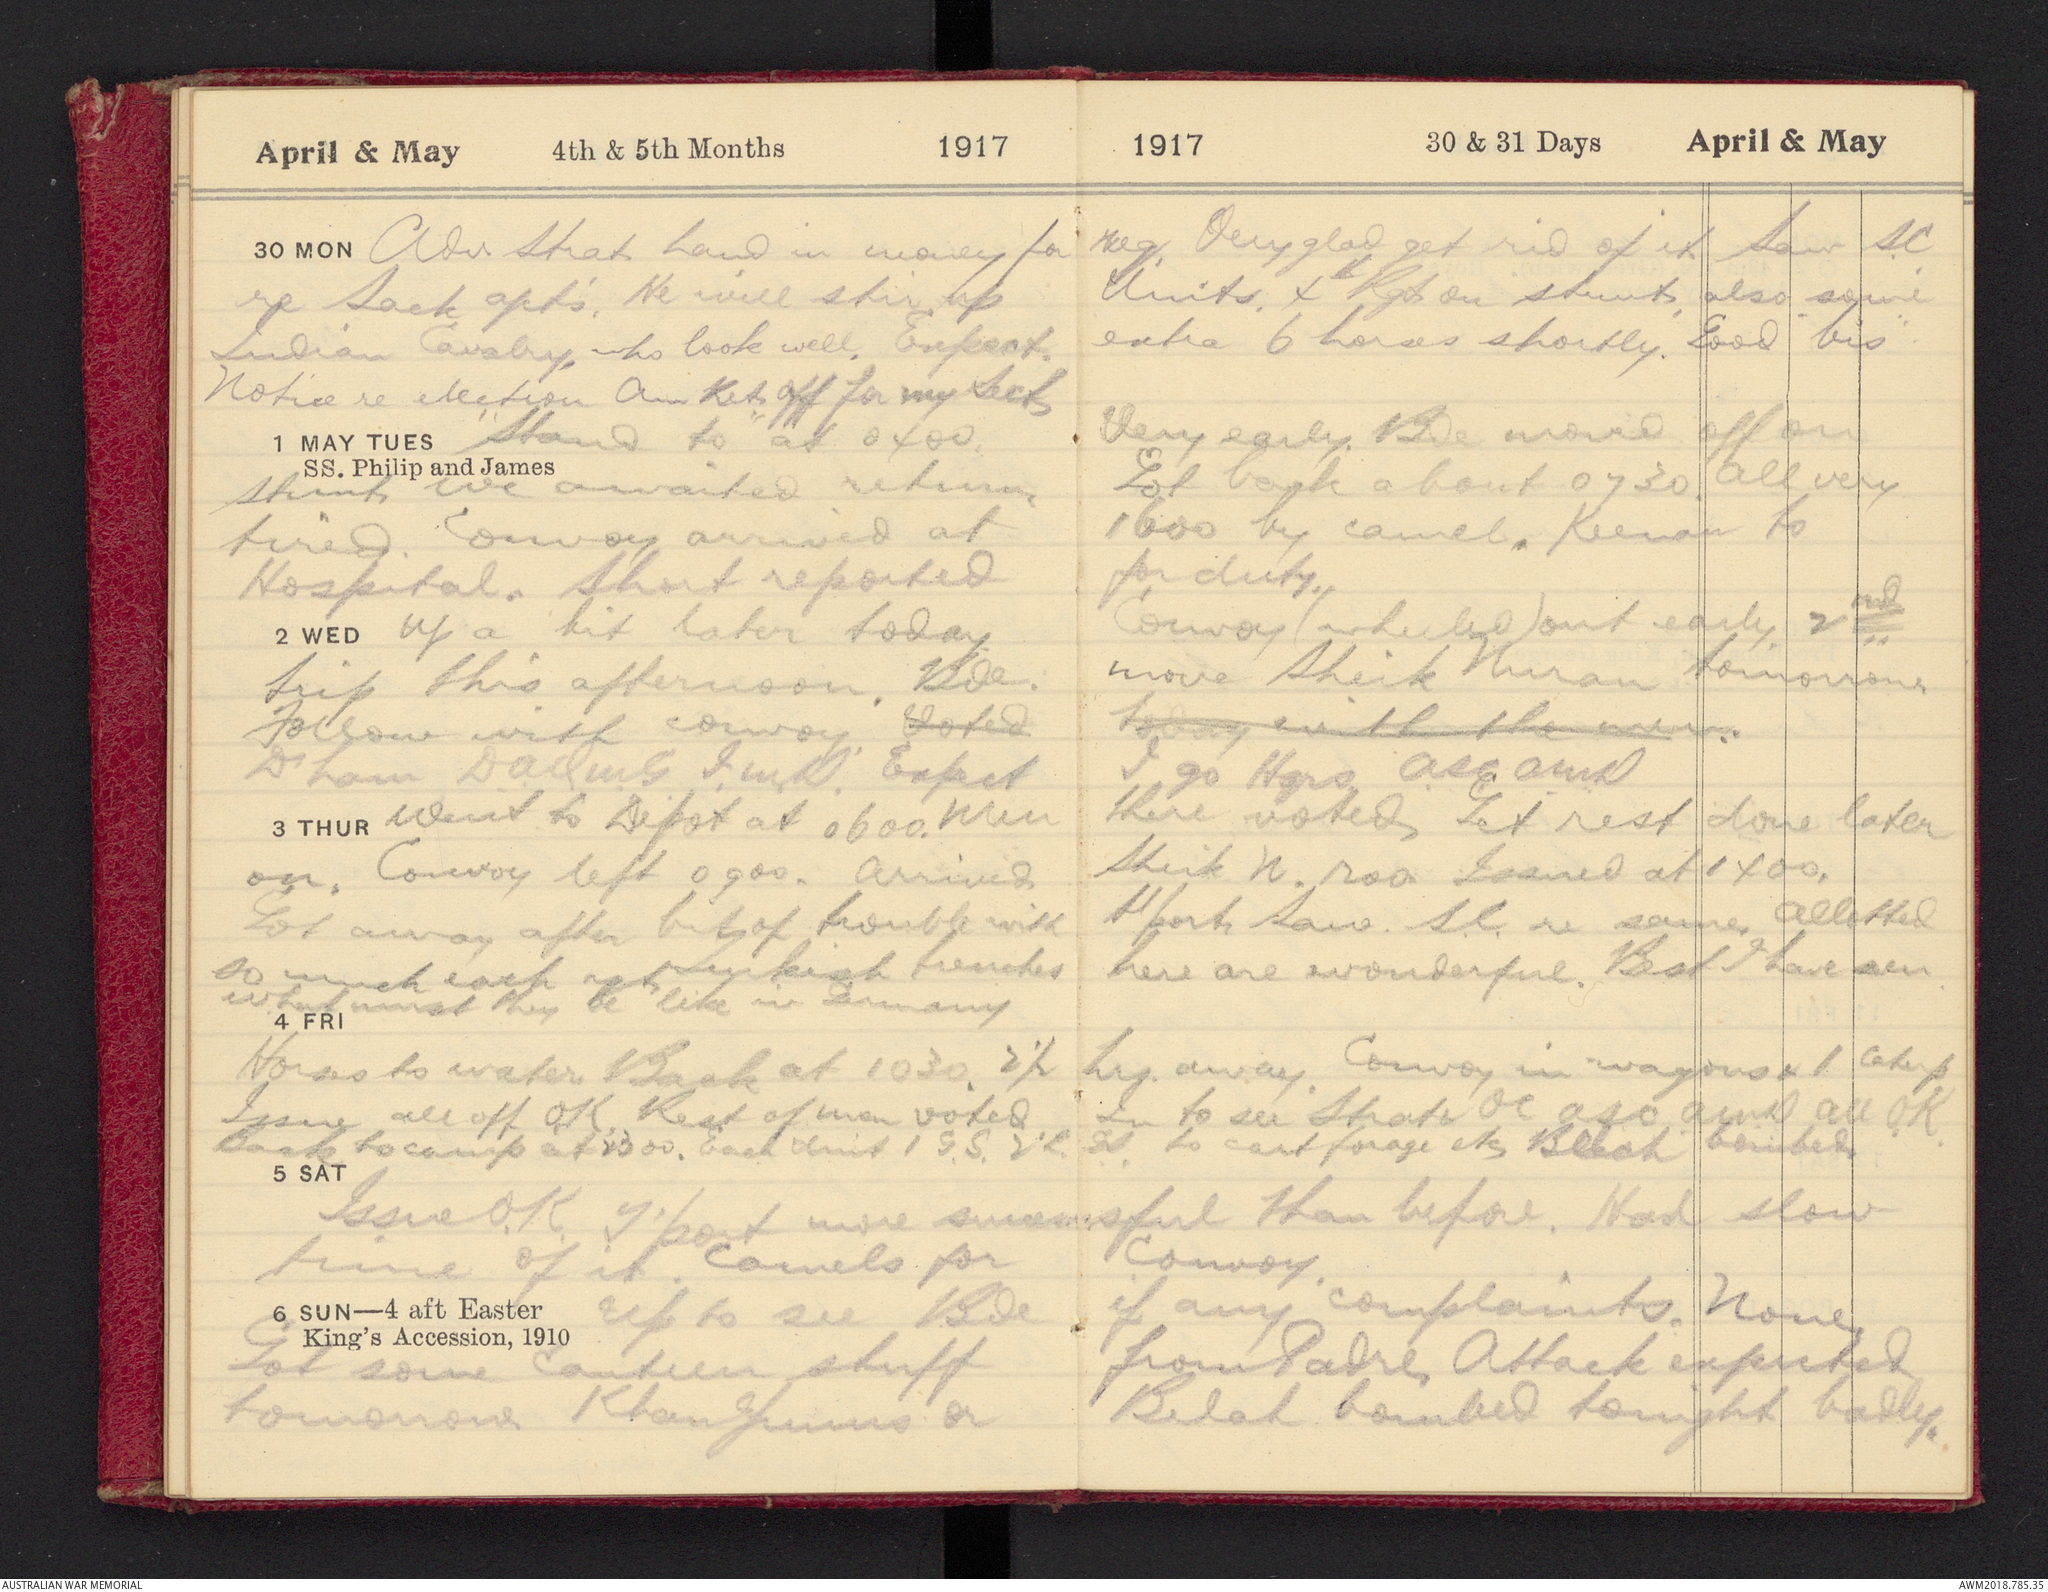 April & May 4th & 5th Months 1917
1917 30 & 31 Days April & May
30 MON Adv. Strat. hand in money for reg. Very glad get rid of it. Saw S.C
re Sack apts. He will stir up Units. 4th Rgt on stunt, also some
Indian Cavalry, who look well. Expect. extra 6 horses shortly. Good "bis"
Notice re election Am Ket off for my Sect
1 MAY TUES "Stand to" at 0400. Very early. Bde moved off on
SS. Philip and James
stunt. We awaited return. Got back about 0730. All very
tired. Convoy arrived at 1600 by camel. Keenan to
Hospital. Short reported for duty.
2 WED Up a bit later today. Convoy (wheeled) out early. 2nd
trip this afternoon. Bde. move Sheik Nuran tomorrow.
Follow with convoy. Voted today with the men.
D'ham DADMG I.M.D. Expect I go Hqrs. ASC AMD
3 THUR Went to Depot at 0600. Men there voted. Get rest done later
on. Convoy left 0900. Arrived Sheik N. 1200. Issued at 1400.
Got away after bit of trouble with t'port. Saw S.C. re same. Allotted
so much each rgt. Turkish trenches here are wonderful. Best I have seen
what must they be like in Germany
4 FRI
Horses to water. Back at 1030. away. Convoy in wagons & 1 caterp
Issue all off OK. Rest of men voted. In to see Strat. OC ASC AMD All OK.
back to camp at 2300. Each Unit 1 G.S. to cart forage etc. Belah bombed
5 SAT
Issue O.K. T'port more successful than before. Had slow
time of it. Camels for Convoy.
6 SUN—4 aft Easter Up to see Bde if any complaints. None.
King's Accession, 1910
Got some Canteen stuff from Padre. Attack expected
tomorrow Khan Yunus or Belah bombed tonight badly.
AUSTRALIAN WAR MEMORIAL
AWM2018.785.35